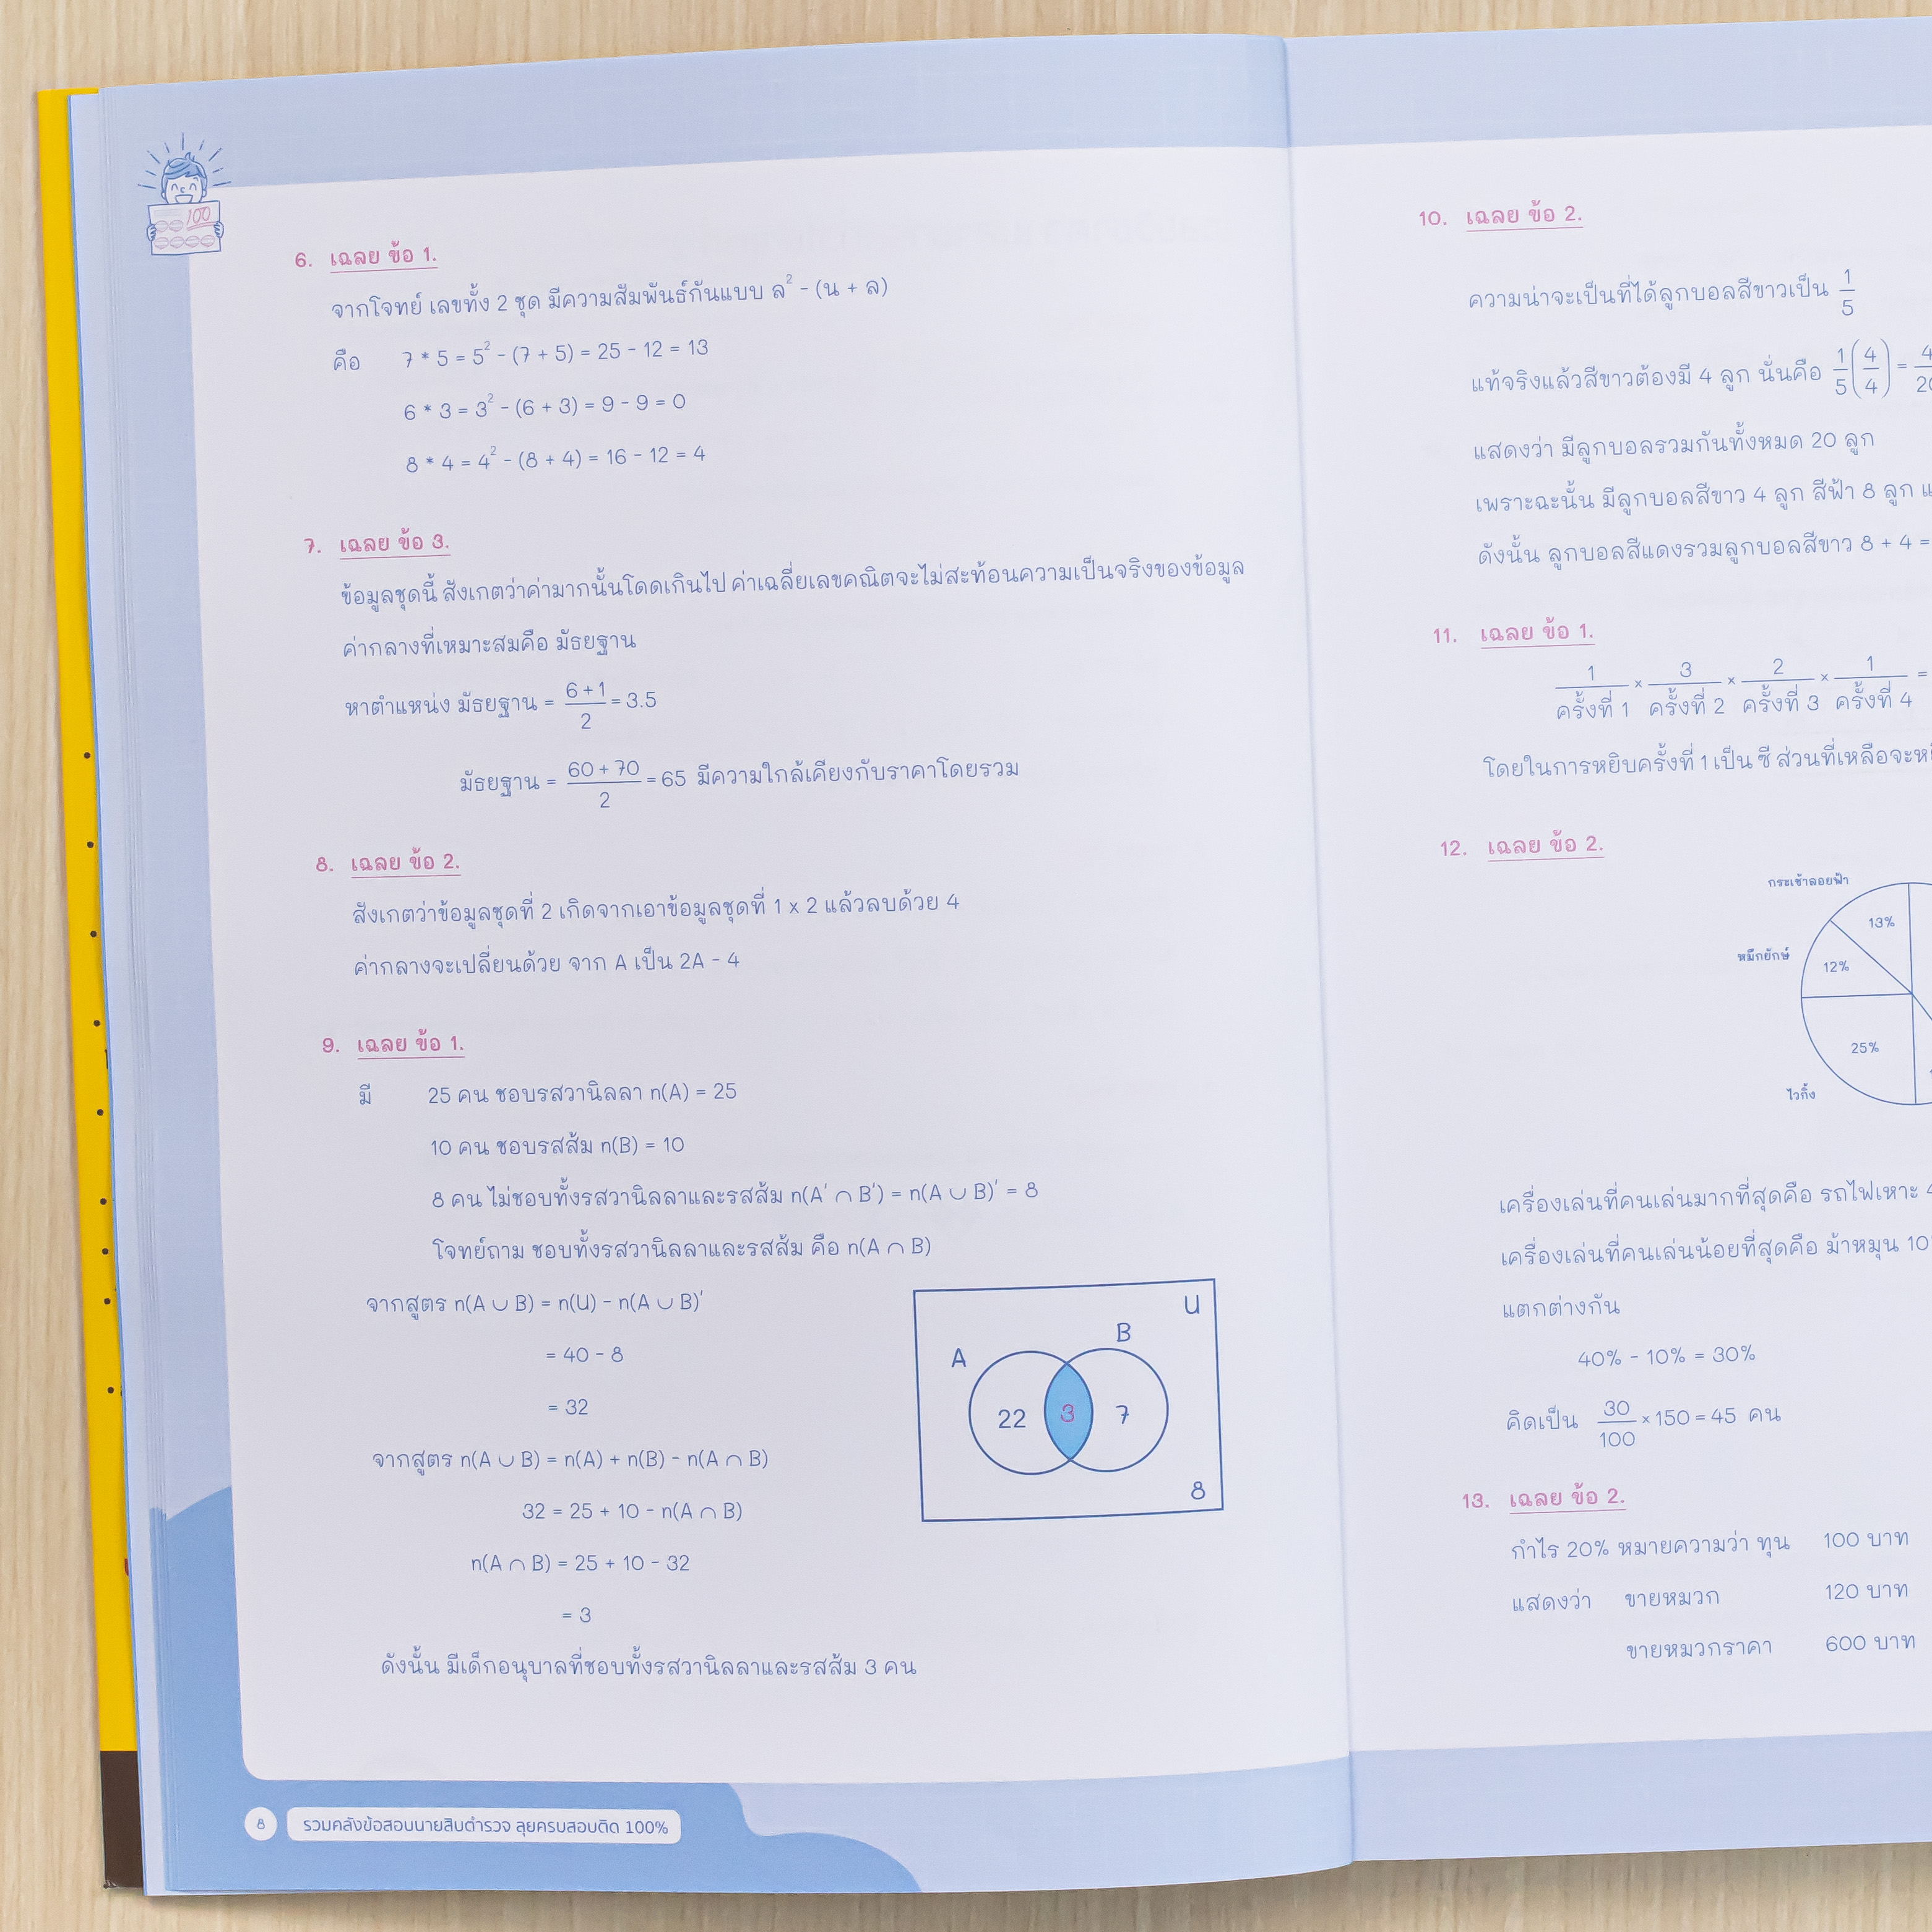 100
6. เฉลย ข้อ 1.
จากโจทย์ เลขทั้ง 2 ชุด มีความสัมพันธ์กันแบบ ล² - (น + ล)
คือ 7 * 5 = 5² - (7 + 5) = 25 - 12 = 13
6 * 3 = 3² - (6 + 3) = 9 - 9 = 0
8 * 4 = 4² - (8 + 4) = 16 - 12 = 4
7. เฉลย ข้อ 3.
ข้อมูลชุดนี้ สังเกตว่าค่ามากนั้นโดดเกินไป ค่าเฉลี่ยเลขคณิตจะไม่สะท้อนความเป็นจริงของข้อมูล
ค่ากลางที่เหมาะสมคือ มัธยฐาน
หาตำแหน่ง มัธยฐาน = (6 + 1)/2 = 3.5
มัธยฐาน = (60 + 70)/2 = 65 มีความใกล้เคียงกับราคาโดยรวม
8. เฉลย ข้อ 2.
สังเกตว่าข้อมูลชุดที่ 2 เกิดจากเอาข้อมูลชุดที่ 1 x 2 แล้วลบด้วย 4
ค่ากลางจะเปลี่ยนด้วย จาก A เป็น 2A - 4
9. เฉลย ข้อ 1.
มี 25 คน ชอบรสวานิลลา n(A) = 25
10 คน ชอบรสส้ม n(B) = 10
8 คน ไม่ชอบทั้งรสวานิลลาและรสส้ม n(A′ ∩ B′) = n(A ∪ B)′ = 8
โจทย์ถาม ชอบทั้งรสวานิลลาและรสส้ม คือ n(A ∩ B)
จากสูตร n(A ∪ B) = n(U) - n(A ∪ B)′
= 40 - 8
= 32
จากสูตร n(A ∪ B) = n(A) + n(B) - n(A ∩ B)
32 = 25 + 10 - n(A ∩ B)
n(A ∩ B) = 25 + 10 - 32
= 3
ดังนั้น มีเด็กอนุบาลที่ชอบทั้งรสวานิลลาและรสส้ม 3 คน
U
B
A
22 3 7
8
8 รวมคลังข้อสอบนายสิบตำรวจ ลุยครบสอบติด 100%
10. เฉลย ข้อ 2.
ความน่าจะเป็นที่ได้ลูกบอลสีขาวเป็น 1/5
แท้จริงแล้วสีขาวต้องมี 4 ลูก นั่นคือ 1/5 (4/4) =
แสดงว่า มีลูกบอลรวมกันทั้งหมด 20 ลูก
เพราะฉะนั้น มีลูกบอลสีขาว 4 ลูก สีฟ้า 8 ลูก
ดังนั้น ลูกบอลสีแดงรวมลูกบอลสีขาว 8 + 4 =
11. เฉลย ข้อ 1.
1/ครั้งที่ 1 × 3/ครั้งที่ 2 × 2/ครั้งที่ 3 × 1/ครั้งที่ 4 =
โดยในการหยิบครั้งที่ 1 เป็น ซี ส่วนที่เหลือจะ
12. เฉลย ข้อ 2.
กระเช้าลอยฟ้า
13%
หมึกยักษ์
12%
25%
ไวกิ้ง
เครื่องเล่นที่คนเล่นมากที่สุดคือ รถไฟเหาะ
เครื่องเล่นที่คนเล่นน้อยที่สุดคือ ม้าหมุน 10
แตกต่างกัน
40% - 10% = 30%
คิดเป็น 30/100 × 150 = 45 คน
13. เฉลย ข้อ 2.
กำไร 20% หมายความว่า ทุน 100 บาท
แสดงว่า ขายหมวก 120 บาท
ขายหมวกราคา 600 บาท